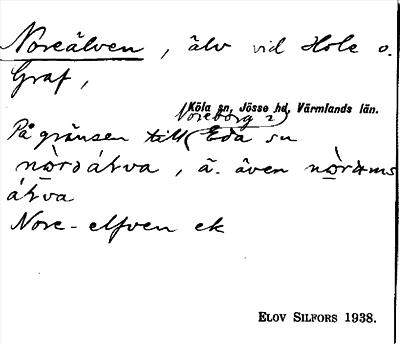 Noreälven, älv vid Hole o.
Graf,
Köla sn, Jösse hd, Värmlands län.
Noreborg 2)
På gränsen till Eda sn
nòrə ǻva, ä. även nòrəms
ǻva
Nore-elfven ek
ELOV SILFORS 1938.